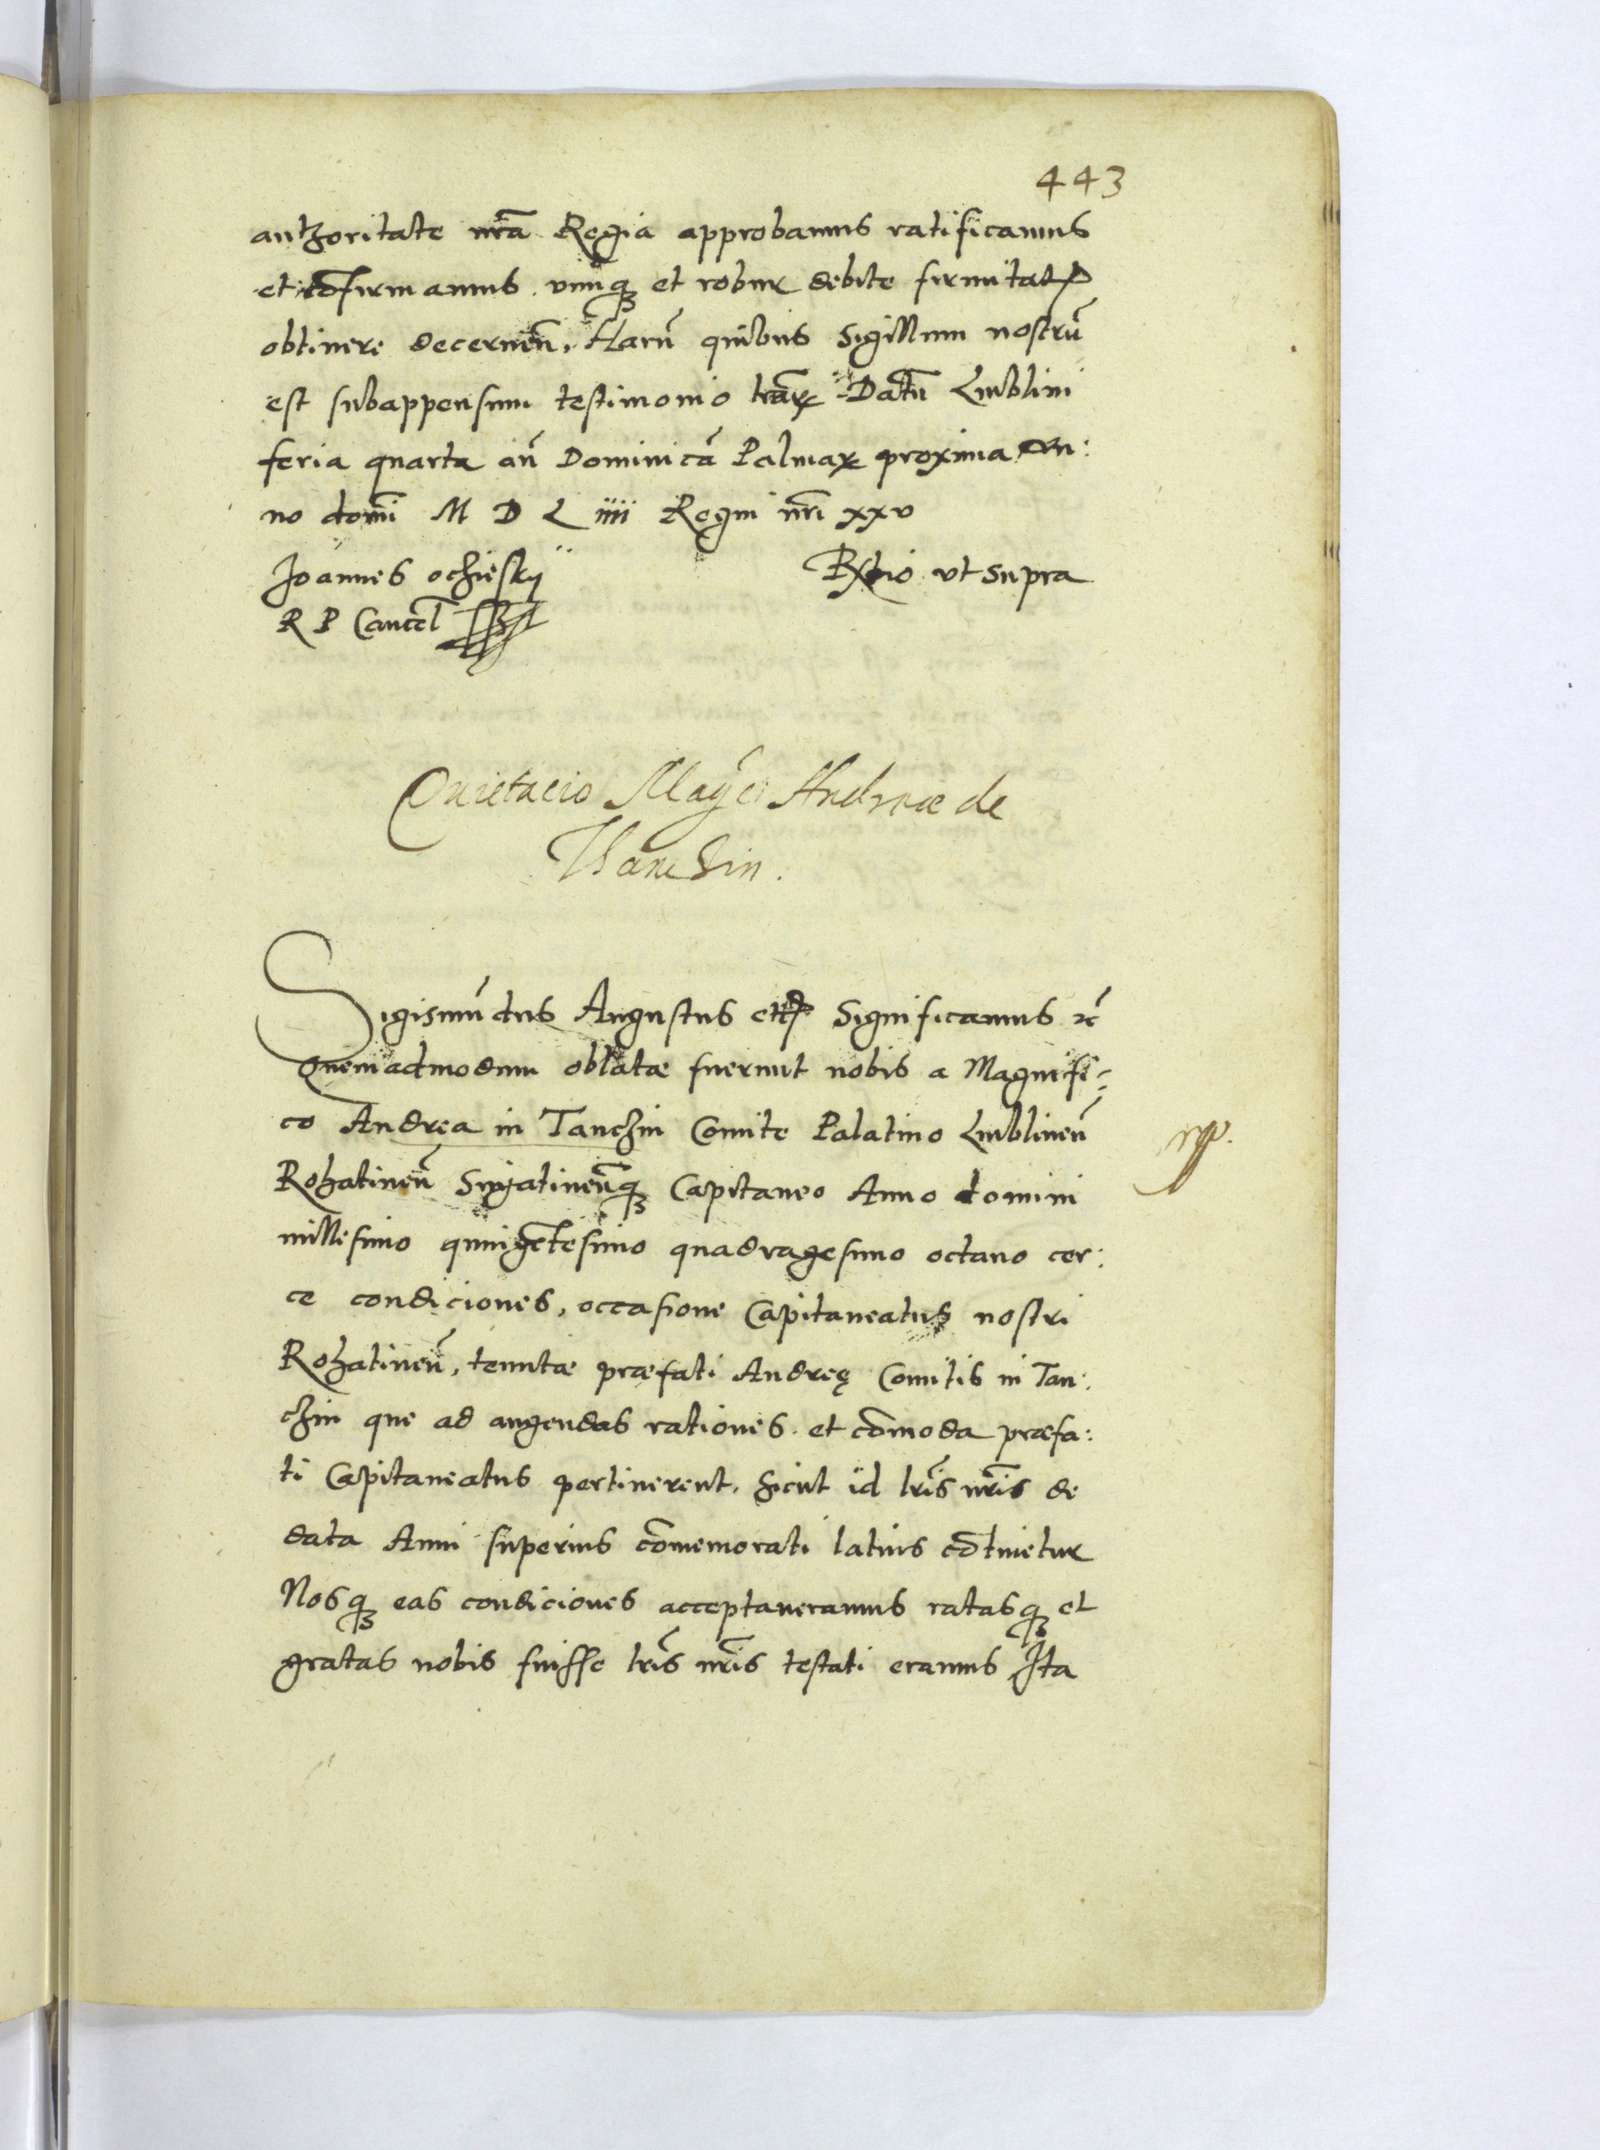 443
authoritate nr̃a Regia approbamus ratificamus
et cõfirmamus vimq́ꝫ et robur debite firmitatꝭ
obtinere decernen̄. Harū quibus Sigillum nostrū
est subappensum testimonio lr̃aꝝ Datū Lublini
feria quarta an̄ Dominicā Palmaꝝ proxima An:
no domĩ M D L iiii Regni nr̃i xxv
Joannes ochieskÿ
Rłtio vt supra
R P Cancel̃
Quietacio Mag͂ci Andreæ de
Thanczin.
Sigismūdus Augustus ettꝭ Significamus ꝛc̃
Quemadmodum oblatæ fuerunt nobis a Magnifi:
co Andrea in Tanczin Comite Palatino Lublinen̄
Rohatinen̄ Snyatinen̄qꝫ Capitaneo Anno domini
millesimo quingẽtesimo quadragesimo octauo cer:
te condiciones, occasione Capitaneatus nostri
Rohatinen̄, tenutæ præfati Andreę Comitis in Tan:
czin que ad augendas rationes et cõmoda præfa:
ti Capitaneatus pertinerent, sicut id lr̃is nr̃is de
data Anni superius cõmemorati latius cõtinetur
Nosqꝫ eas condiciones acceptaueramus ratasqꝫ et
gratas nobis fuisse lr̃is nr̃is testati eramus Ita